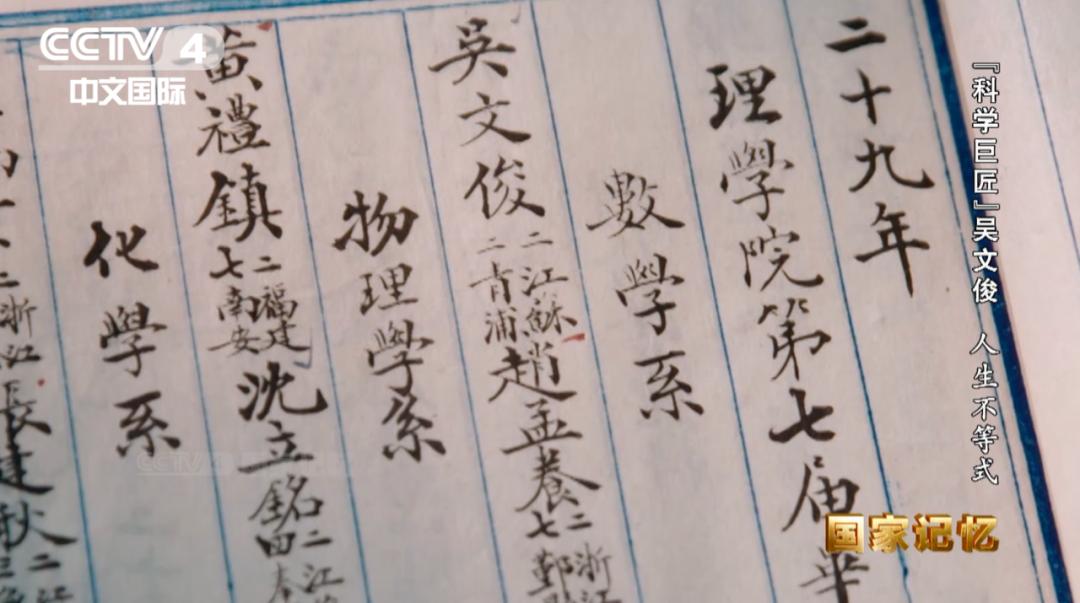 CCTV 4
中文国际
『科学巨匠』吴文俊 人生不等式
二十九年
理學院第七届畢
數學系
吳文俊 二江蘇 二青浦 趙孟養 二浙江 七鄞
物理學系
黄禮鎮 二福建 七南安 沈立銘 二江
化學系
二浙江
国家记忆